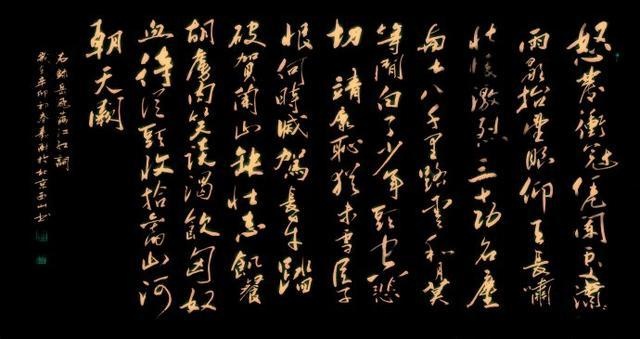 怒髮衝冠凭闌處瀟
雨歇抬望眼仰天長嘯
壯懷激烈三十功名塵
與土八千里路雲和月莫
等閒白了少年頭空悲
切 靖康恥猶未雪臣子
恨何時滅駕長車踏
破賀蘭山缺壯志飢餐
胡虜肉笑談渴飲匈奴
血待從頭收拾舊山河
朝天闕
右錄岳飛滿江紅詞